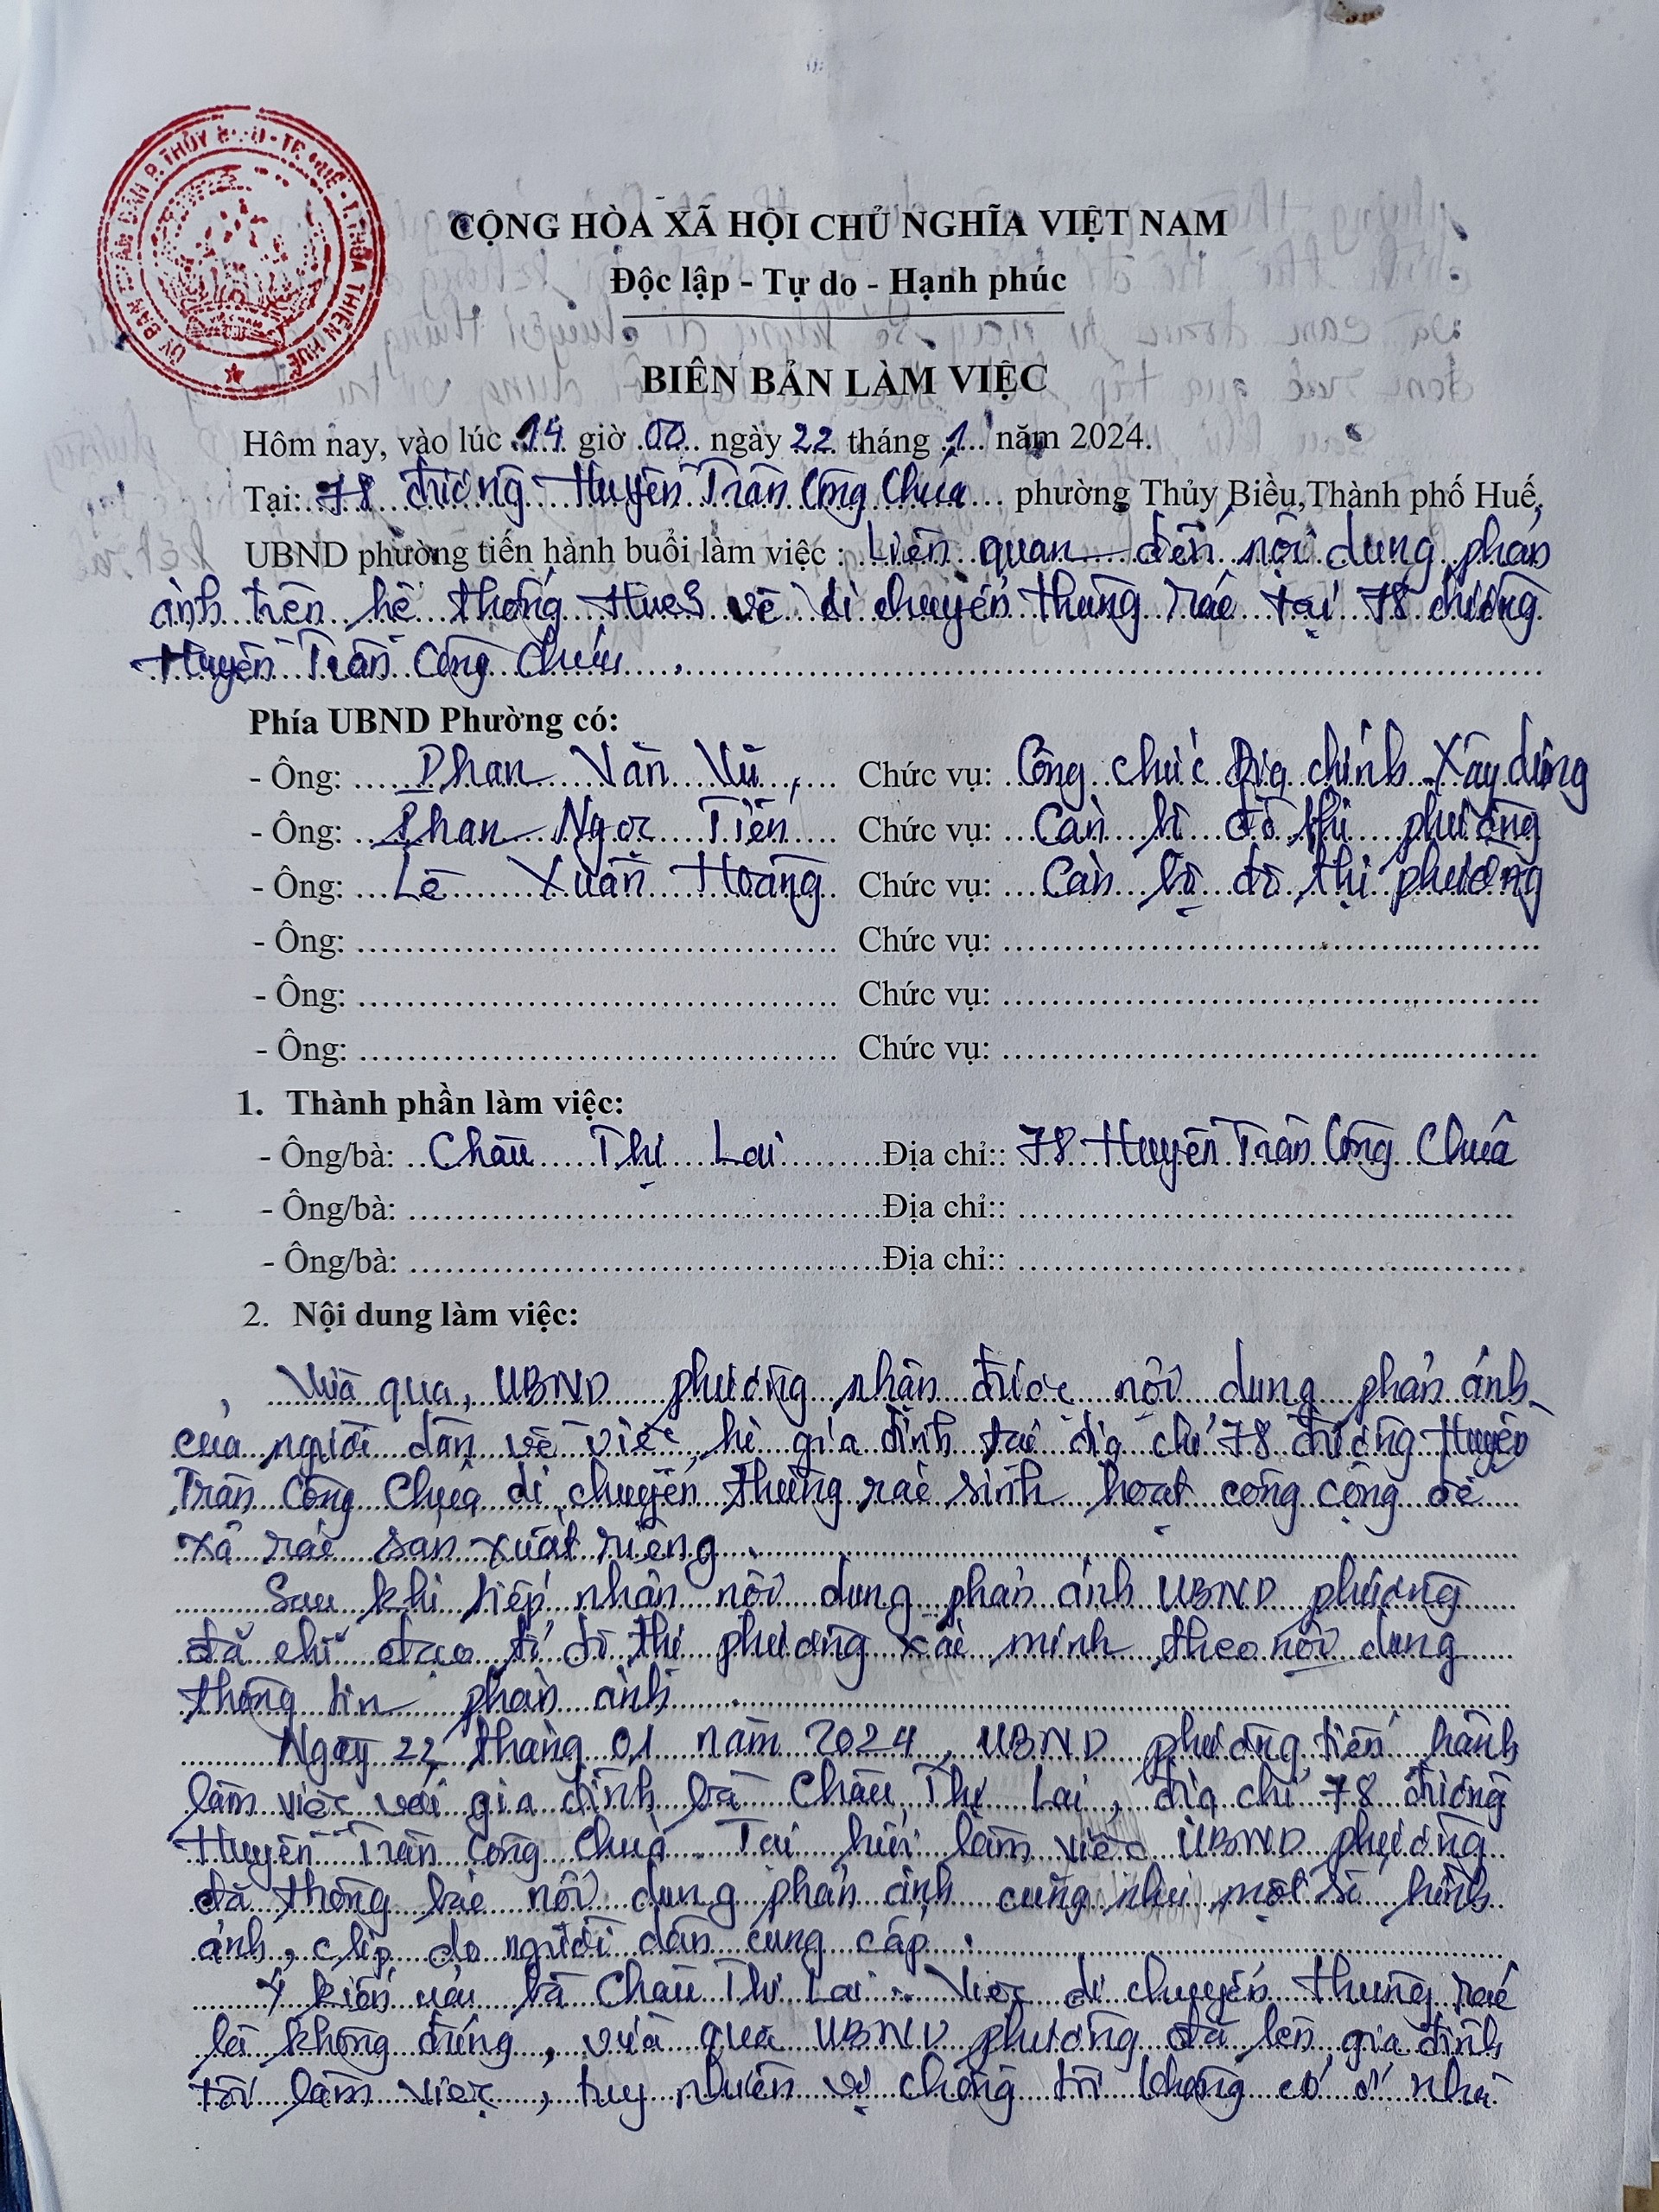 ỦY BAN NHÂN DÂN P. THỦY BIỀU - TP. HUẾ - T. THỪA THIÊN HUẾ
CỘNG HÒA XÃ HỘI CHỦ NGHĨA VIỆT NAM
Độc lập - Tự do - Hạnh phúc
BIÊN BẢN LÀM VIỆC
Hôm nay, vào lúc 14 giờ 00 ngày 22 tháng 1 năm 2024.
Tại: 78 đường Huyền Trân Công Chúa phường Thủy Biều,Thành phố Huế.
UBND phường tiến hành buổi làm việc : Liên quan đến nội dung phản
ánh trên hệ thống HueS về di chuyển thùng rác tại 78 đường
Huyền Trân Công Chúa.
Phía UBND Phường có:
- Ông: Phan Văn Vũ, Chức vụ: Công chức Địa chính - Xây dựng
- Ông: Phan Ngọc Tiến Chức vụ: Cán bộ đô thị phường
- Ông: Lê Xuân Hoàng Chức vụ: Cán bộ đô thị phường
- Ông: Chức vụ:
- Ông: Chức vụ:
- Ông: Chức vụ:
1. Thành phần làm việc:
- Ông/bà: Châu Thị Lai Địa chỉ:: 78 Huyền Trân Công Chúa
- Ông/bà: Địa chỉ::
- Ông/bà: Địa chỉ::
2. Nội dung làm việc:
Vừa qua, UBND phường nhận được nội dung phản ánh
của người dân về việc hộ gia đình tại địa chỉ 78 đường Huyền
Trân Công Chúa di chuyển thùng rác sinh hoạt công cộng để
xả rác sản xuất riêng.
Sau khi tiếp nhận nội dung phản ánh UBND phường
đã chỉ đạo tổ đô thị phường xác minh theo nội dung
thông tin phản ánh.
Ngày 22 tháng 01 năm 2024, UBND phường tiến hành
làm việc với gia đình bà Châu Thị Lai, địa chỉ 78 đường
Huyền Trân Công Chúa. Tại buổi làm việc UBND phường
đã thông báo nội dung phản ánh cũng như một số hình
ảnh, clip do người dân cung cấp.
Ý kiến của bà Châu Thị Lai: Việc di chuyển thùng rác
là không đúng, vừa qua UBND phường đã lên gia đình
tôi làm việc, tuy nhiên vợ chồng tôi không có ở nhà